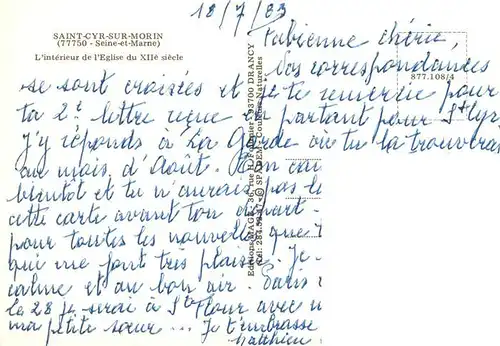 18/7/83
SAINT-CYR-SUR-MORIN
(77750 - Seine-et-Marne)
L'intérieur de l'Eglise du XIIe siècle
877.108/4
Editions MAGE - 36, rue H. 93700 DRANCY
Tél. : 284. SPADEM Couleurs Naturelles
Fabienne chérie,
Nos correspondances
se sont croisées et je te remercie pour
ta 2e lettre reçue en partant pour St Cyr
J'y réponds à La Garde où tu la trouveras
au mois d'Août.
bientôt et tu n'aurais pas
cette carte avant ton départ.
pour toutes les nouvelles que
qui me font très plaisir. Je
calme et au bon air. Paris
le 28 je serai à St Flour avec
ma petite sœur ... Je t'embrasse